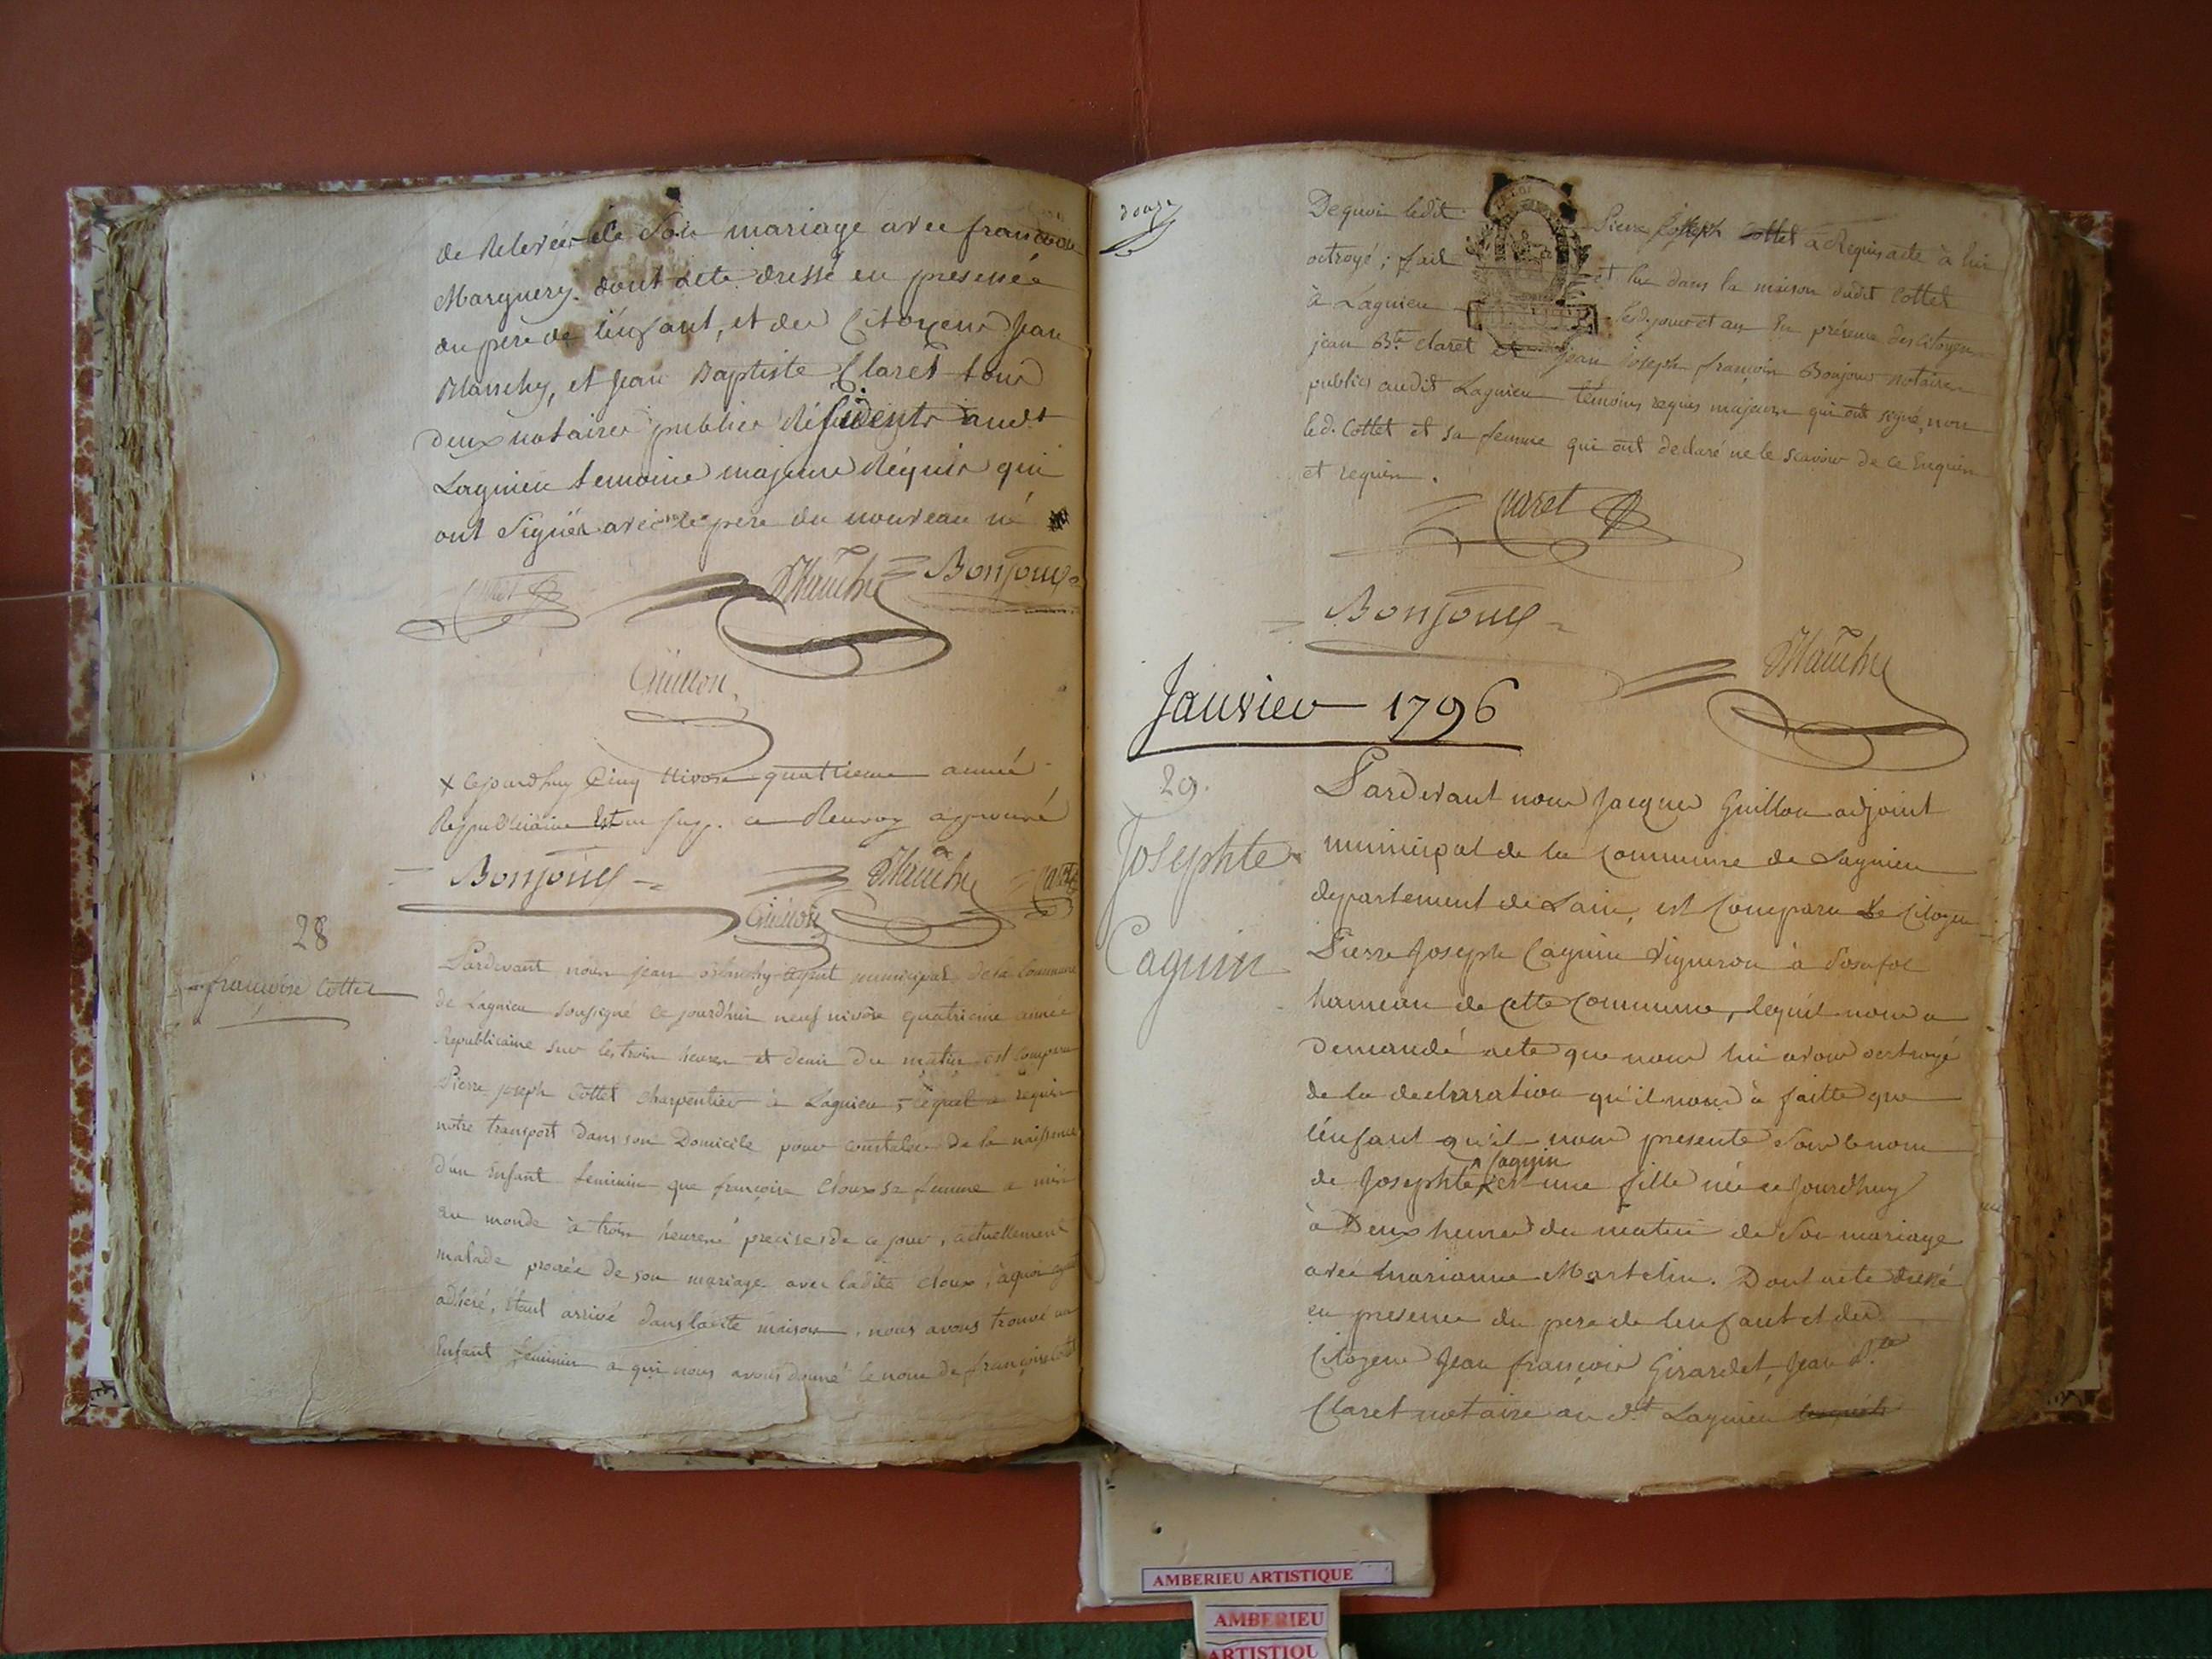 de Relevée de Son mariage avec francoise
Marguery. dont acte dressé en presence
du pere de l'enfant, et des Citoyens Jean
Blanchy, et Jean Baptiste Claret tous
deux notaires publics Résidents audt
Lagnieu temoins majeurs Réquis qui
ont Signés avec le pere du nouveau né
Claret Blanchy Bonjour
Guillon
+ Cejourdhuy Cinq Nivose quatrieme année
Republicaine Est en ce Renvoy approuvé
Bonjour Blanchy Claret
Guillon
28
francoise Cottet
Pardevant nous jean Blanchy agent municipal de la Commune
de Lagnieu soussigné ce jourd'hui neuf nivose quatrieme année
Republicaine sur les trois heures et demi du matin est comparu
Pierre joseph Cottet charpentier à Lagnieu, lequel a requis
notre transport dans son Domicile pour constater de la naissance
d'un Enfant feminin que françoise Cloux sa femme a mis
au monde à trois heures precises de ce jour, actuellement
malade procrée de son mariage avec ladite Cloux, à quoi ayt
adhéré, étant arrivé dans ladite maison, nous avons trouvé un
Enfant feminin a qui nous avons donné le nom de françoise Cottet
douze
De quoi ledit Pierre Joseph Cottet a Requis acte à lui
octroyé; fait et lu dans la maison dudit Cottet
à Lagnieu lesd. jour et an En présence des Citoyens
jean Bte Claret et jean joseph françois Bonjour notaires
publics audit Lagnieu témoins requis majeurs qui ont signé, non
led. Cottet et sa femme qui ont declaré ne le scavoir de ce Enquis
et requis.
Claret
Bonjour
Blanchy
Janvier 1796
29.
Josephte
Caguin
Pardevant nous Jacques Guillon adjoint
municipal de la Commune de Lagnieu
departement de Lain, est Comparu le Citoyen
Pierre Joseph Caguin Vigneron à Posafol
hameau de cette Commune, lequel nous a
Demandé acte que nous lui avons octroyé
de la declaration qu'il nous à faitte que
l'enfant qu'il nous presente Sous le nom
Caguin
de Josephte est une fille née ce Jourdhuy
à Deux heures du matin de Son mariage
avec Marianne Martelin. Dont acte dressé
en presence du pere de lenfant et des
Citoyens Jean françois Girardet, Jean Bte
Claret notaire au dt Lagnieu
AMBERIEU ARTISTIQUE
AMBERIEU
ARTISTIQU